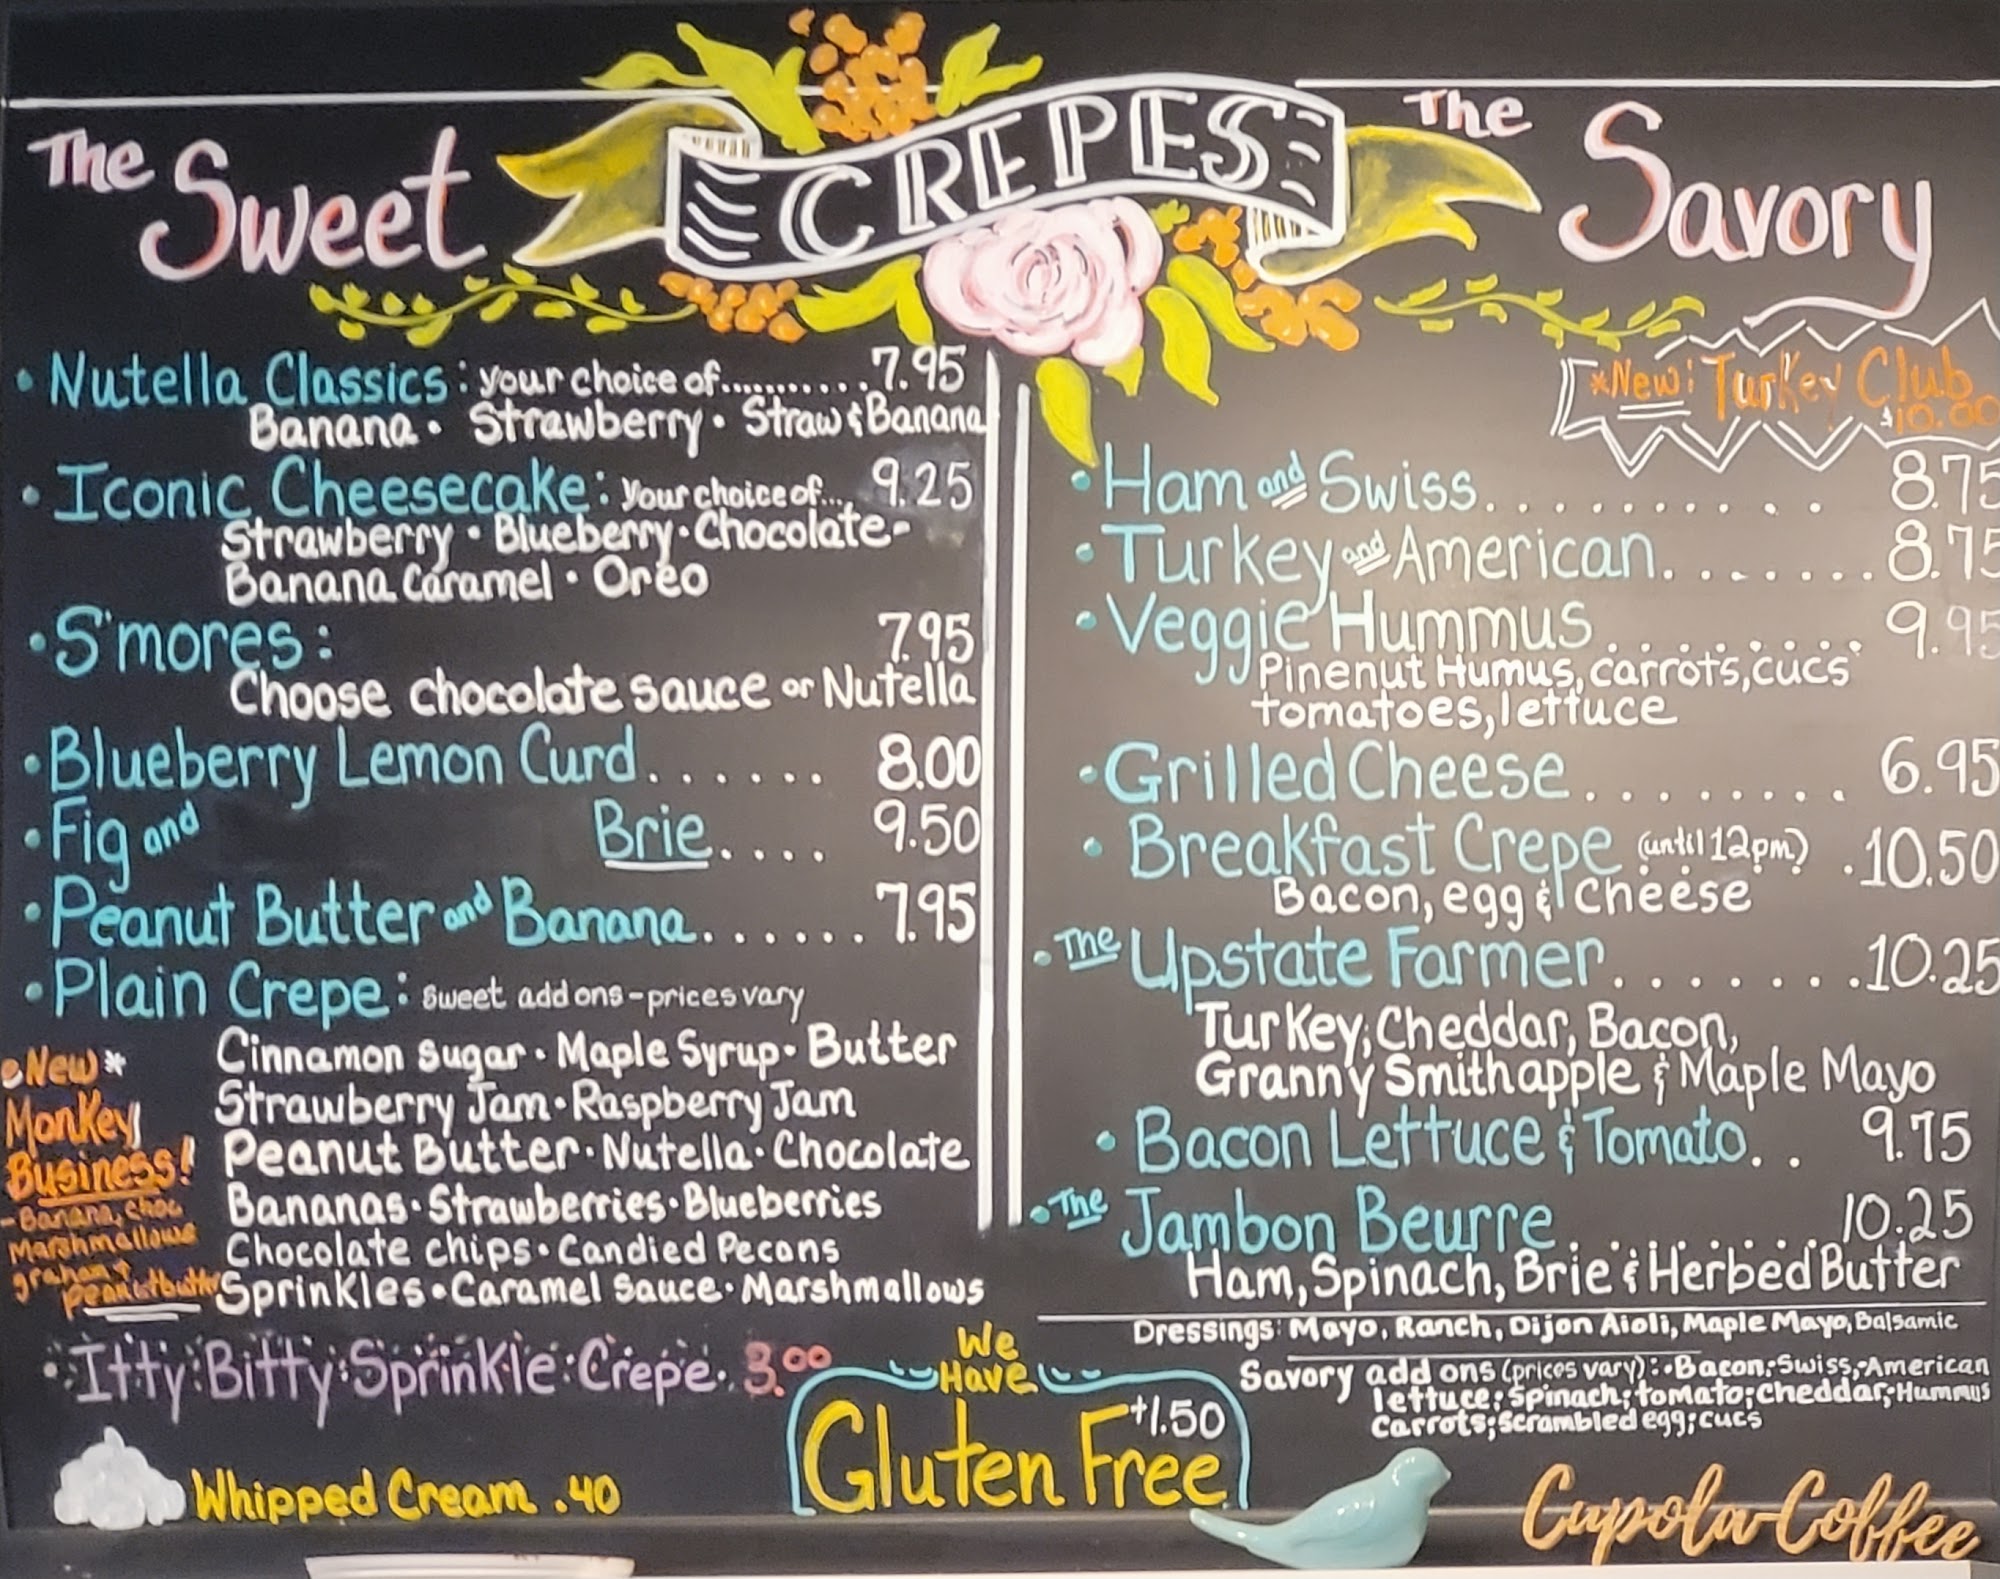 CREPES
The Sweet
• Nutella Classics: your choice of..........7.95
Banana • Strawberry • Straw & Banana
• Iconic Cheesecake: Your choice of.... 9.25
Strawberry • Blueberry • Chocolate -
Banana Caramel • Oreo
• S'mores: 7.95
Choose chocolate sauce or Nutella
• Blueberry Lemon Curd...... 8.00
• Fig and Brie.... 9.50
• Peanut Butter and Banana...... 7.95
• Plain Crepe: sweet add ons - prices vary
Cinnamon sugar • Maple Syrup • Butter
Strawberry Jam • Raspberry Jam
Peanut Butter • Nutella • Chocolate
Bananas • Strawberries • Blueberries
Chocolate chips • Candied Pecans
Sprinkles • Caramel Sauce • Marshmallows
New *
Monkey
Business!
- Banana, choc
Marshmallows
graham +
Peanutbutter
• Itty Bitty Sprinkle Crepe. 3.00
Whipped Cream .40
We
Have
Gluten Free +1.50
The Savory
*New! Turkey Club
$10.00
• Ham and Swiss........... 8.75
• Turkey and American....... 8.75
• Veggie Hummus......... 9.95
Pinenut Humus, carrots, cucs
tomatoes, lettuce
• Grilled Cheese........ 6.95
• Breakfast Crepe (until 12pm) .10.50
Bacon, egg & Cheese
• The Upstate Farmer.......10.25
Turkey, Cheddar, Bacon,
Granny Smith apple & Maple Mayo
• Bacon Lettuce & Tomato.. 9.75
• The Jambon Beurre.......10.25
Ham, Spinach, Brie & Herbed Butter
Dressings: Mayo, Ranch, Dijon Aioli, Maple Mayo, Balsamic
Savory add ons (prices vary): • Bacon; • Swiss; • American
lettuce; spinach; tomato; cheddar; • Hummus
carrots; scrambled egg; cucs
Cupola Coffee